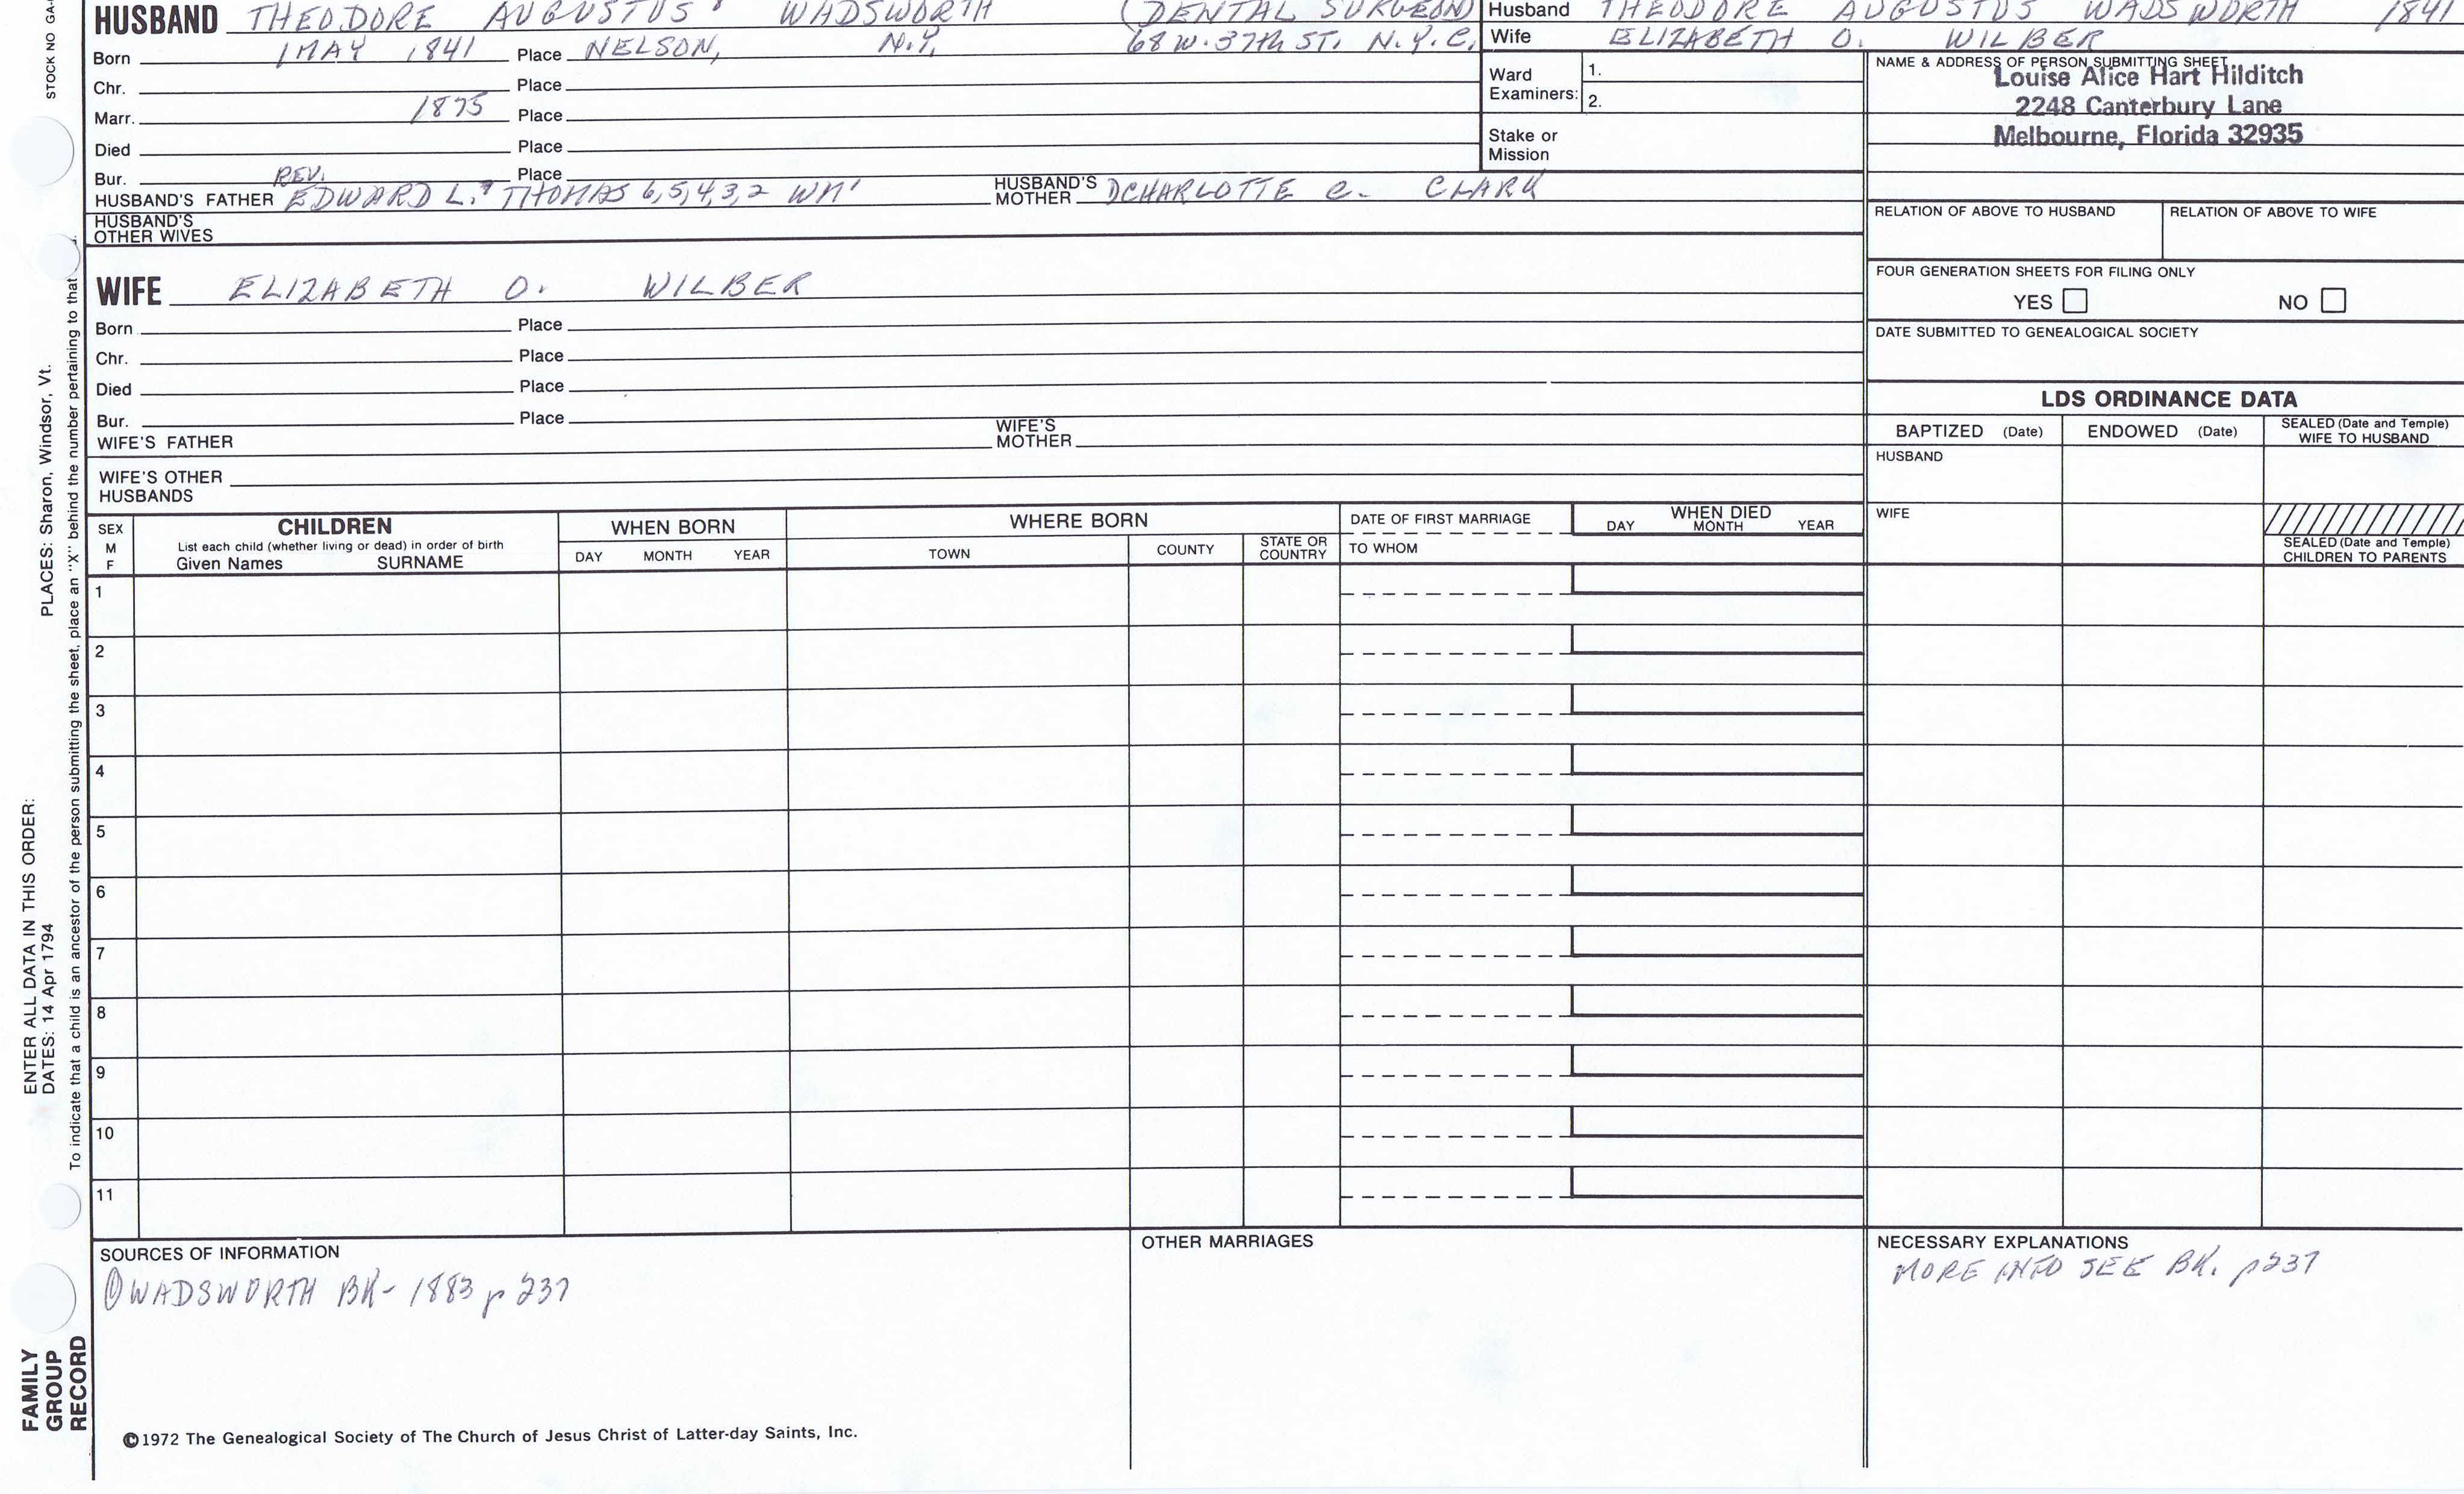 HUSBAND THEODORE AUGUSTUS WADSWORTH (DENTAL SURGEON)
Born 1 MAY 1841 Place NELSON, N.Y. 68 W. 37th ST. N.Y.C.
Chr. Place
Marr. 1875 Place
Died Place
Bur. Place
HUSBAND'S FATHER REV. EDWARD L. THOMAS 6,5,4,3,2 WM' HUSBAND'S MOTHER CHARLOTTE C. CLARK
HUSBAND'S OTHER WIVES
WIFE ELIZABETH O. WILBER
Born Place
Chr. Place
Died Place
Bur. Place
WIFE'S FATHER WIFE'S MOTHER
WIFE'S OTHER HUSBANDS
Husband THEODORE AUGUSTUS WADSWORTH 1841
Wife ELIZABETH O. WILBER
Ward Examiners: 1.
2.
Stake or Mission
NAME & ADDRESS OF PERSON SUBMITTING SHEET
Louise Alice Hart Hilditch
2248 Canterbury Lane
Melbourne, Florida 32935
RELATION OF ABOVE TO HUSBAND RELATION OF ABOVE TO WIFE
FOUR GENERATION SHEETS FOR FILING ONLY
YES NO
DATE SUBMITTED TO GENEALOGICAL SOCIETY
LDS ORDINANCE DATA
BAPTIZED (Date) ENDOWED (Date) SEALED (Date and Temple) WIFE TO HUSBAND
HUSBAND
WIFE
SEALED (Date and Temple)
CHILDREN TO PARENTS
SEX M F
CHILDREN
List each child (whether living or dead) in order of birth
Given Names SURNAME
WHEN BORN
DAY MONTH YEAR
WHERE BORN
TOWN COUNTY STATE OR COUNTRY
DATE OF FIRST MARRIAGE
TO WHOM
WHEN DIED
DAY MONTH YEAR
1
2
3
4
5
6
7
8
9
10
11
SOURCES OF INFORMATION
① WADSWORTH BK- 1883 p 237
OTHER MARRIAGES
NECESSARY EXPLANATIONS
MORE INFO SEE BK. p237
©1972 The Genealogical Society of The Church of Jesus Christ of Latter-day Saints, Inc.
STOCK NO GA-
PLACES: Sharon, Windsor, Vt.
To indicate that a child is an ancestor of the person submitting the sheet, place an "X" behind the number pertaining to that
ENTER ALL DATA IN THIS ORDER:
DATES: 14 Apr 1794
FAMILY
GROUP
RECORD